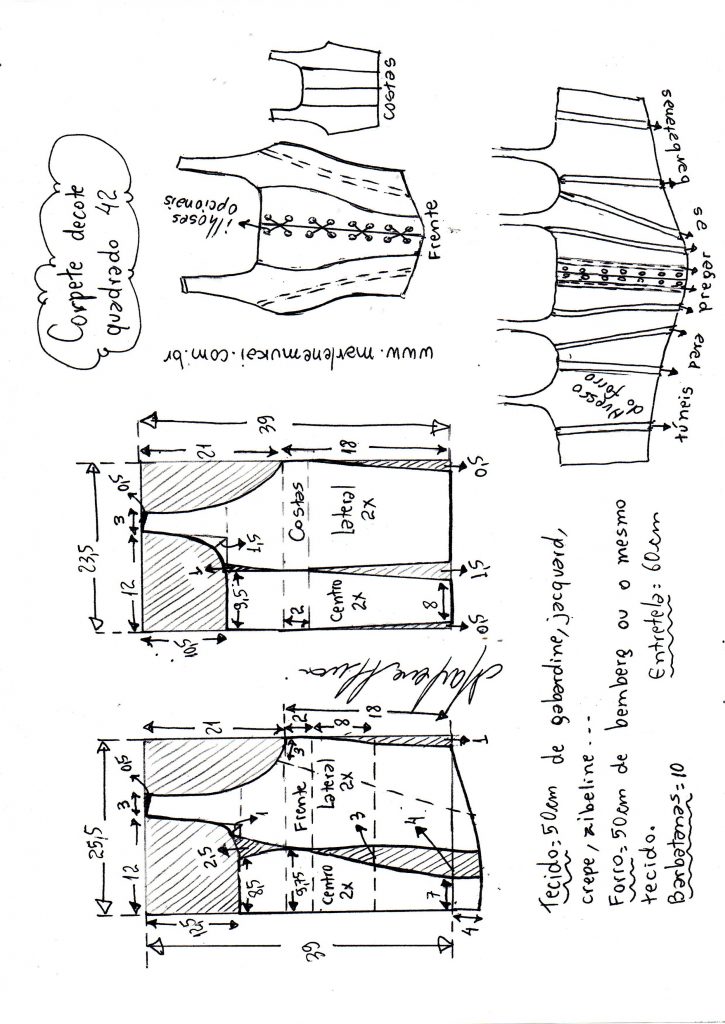 Corpete decote
quadrado 42
ilhoses
opcionais
Frente
costas
www.marlenemukai.com.br
Avesso
do forro
túneis para pregar as barbatanas
25,5
12
3
0,5
39
12,5
21
2,5
1
8,5
3
2
9,75
Frente
Lateral
2X
Centro
2X
8
18
3
4
7
4
1
23,5
12
3
0,5
39
10,5
21
1
1,5
9,5
2
Costas
Lateral
2X
Centro
2X
18
8
0,5
1,5
0,5
Tecido=50cm de gabardine, jacquard,
crepe, zibeline...
Forro=50cm de bemberg ou o mesmo
tecido. Entretela=60cm
Barbatanas=10